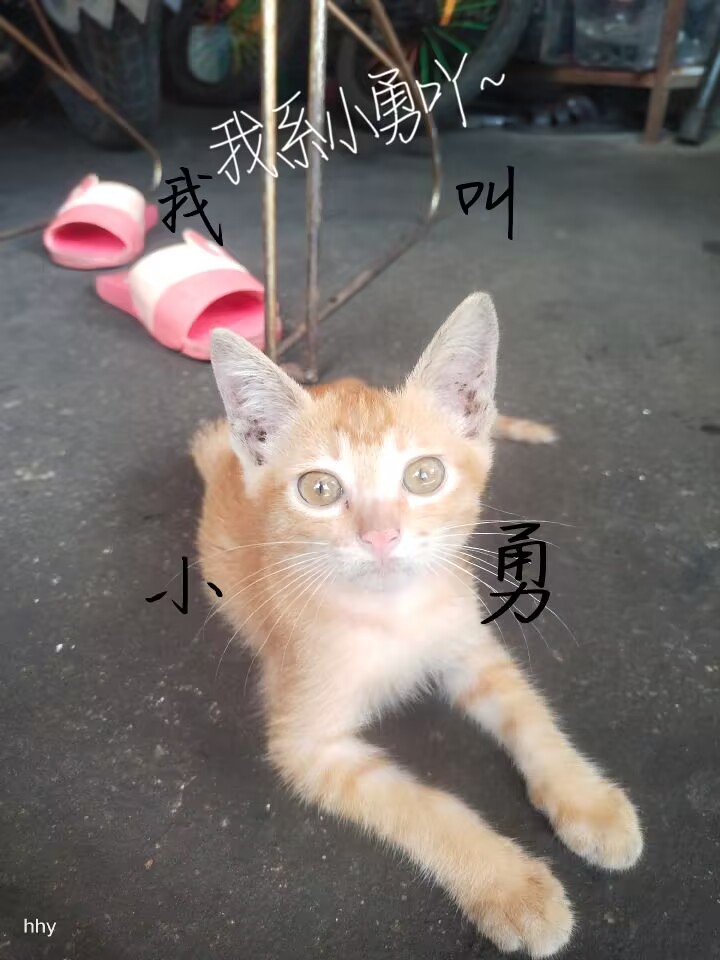 我系小勇吖~
我叫
小勇
hhy